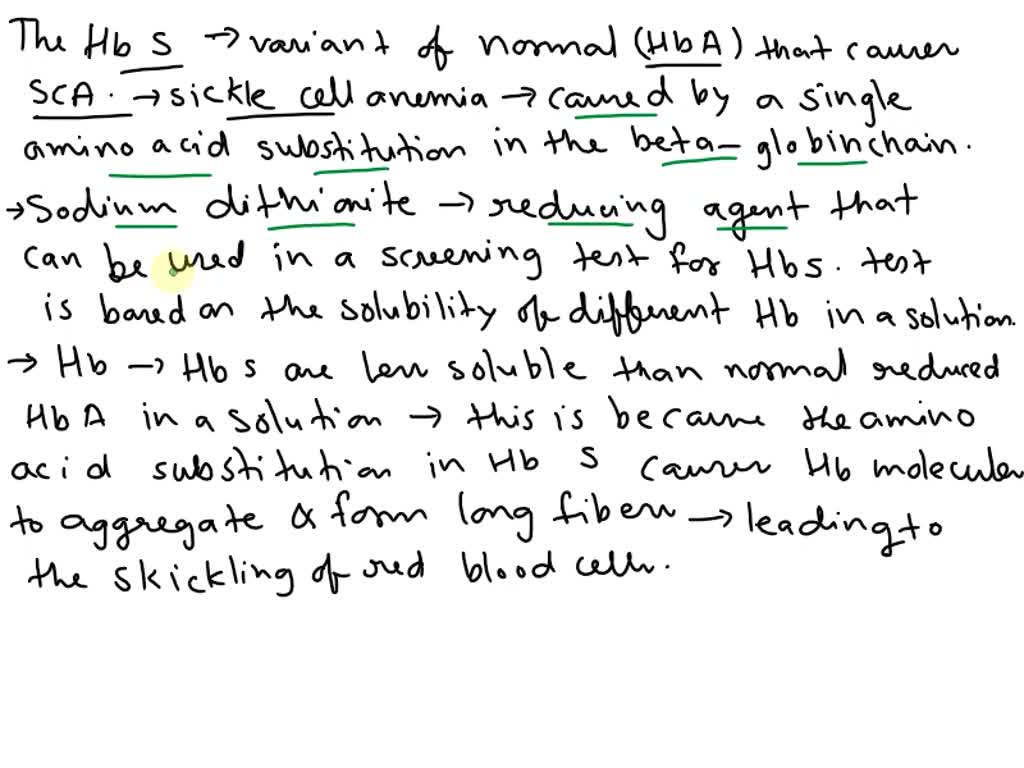 The Hb S → variant of normal (HbA) that causes
SCA. → sickle cell anemia → caused by a single
amino acid substitution in the beta-globin chain.
→ Sodium dithionite → reducing agent that
can be used in a screening test for HbS. test
is based on the solubility of different Hb in a solution.
→ Hb → Hb s are less soluble than normal reduced
HbA in a solution → this is because the amino
acid substitution in Hb S causes Hb molecules
to aggregate & form long fibers → leading to
the skickling of red blood cells.